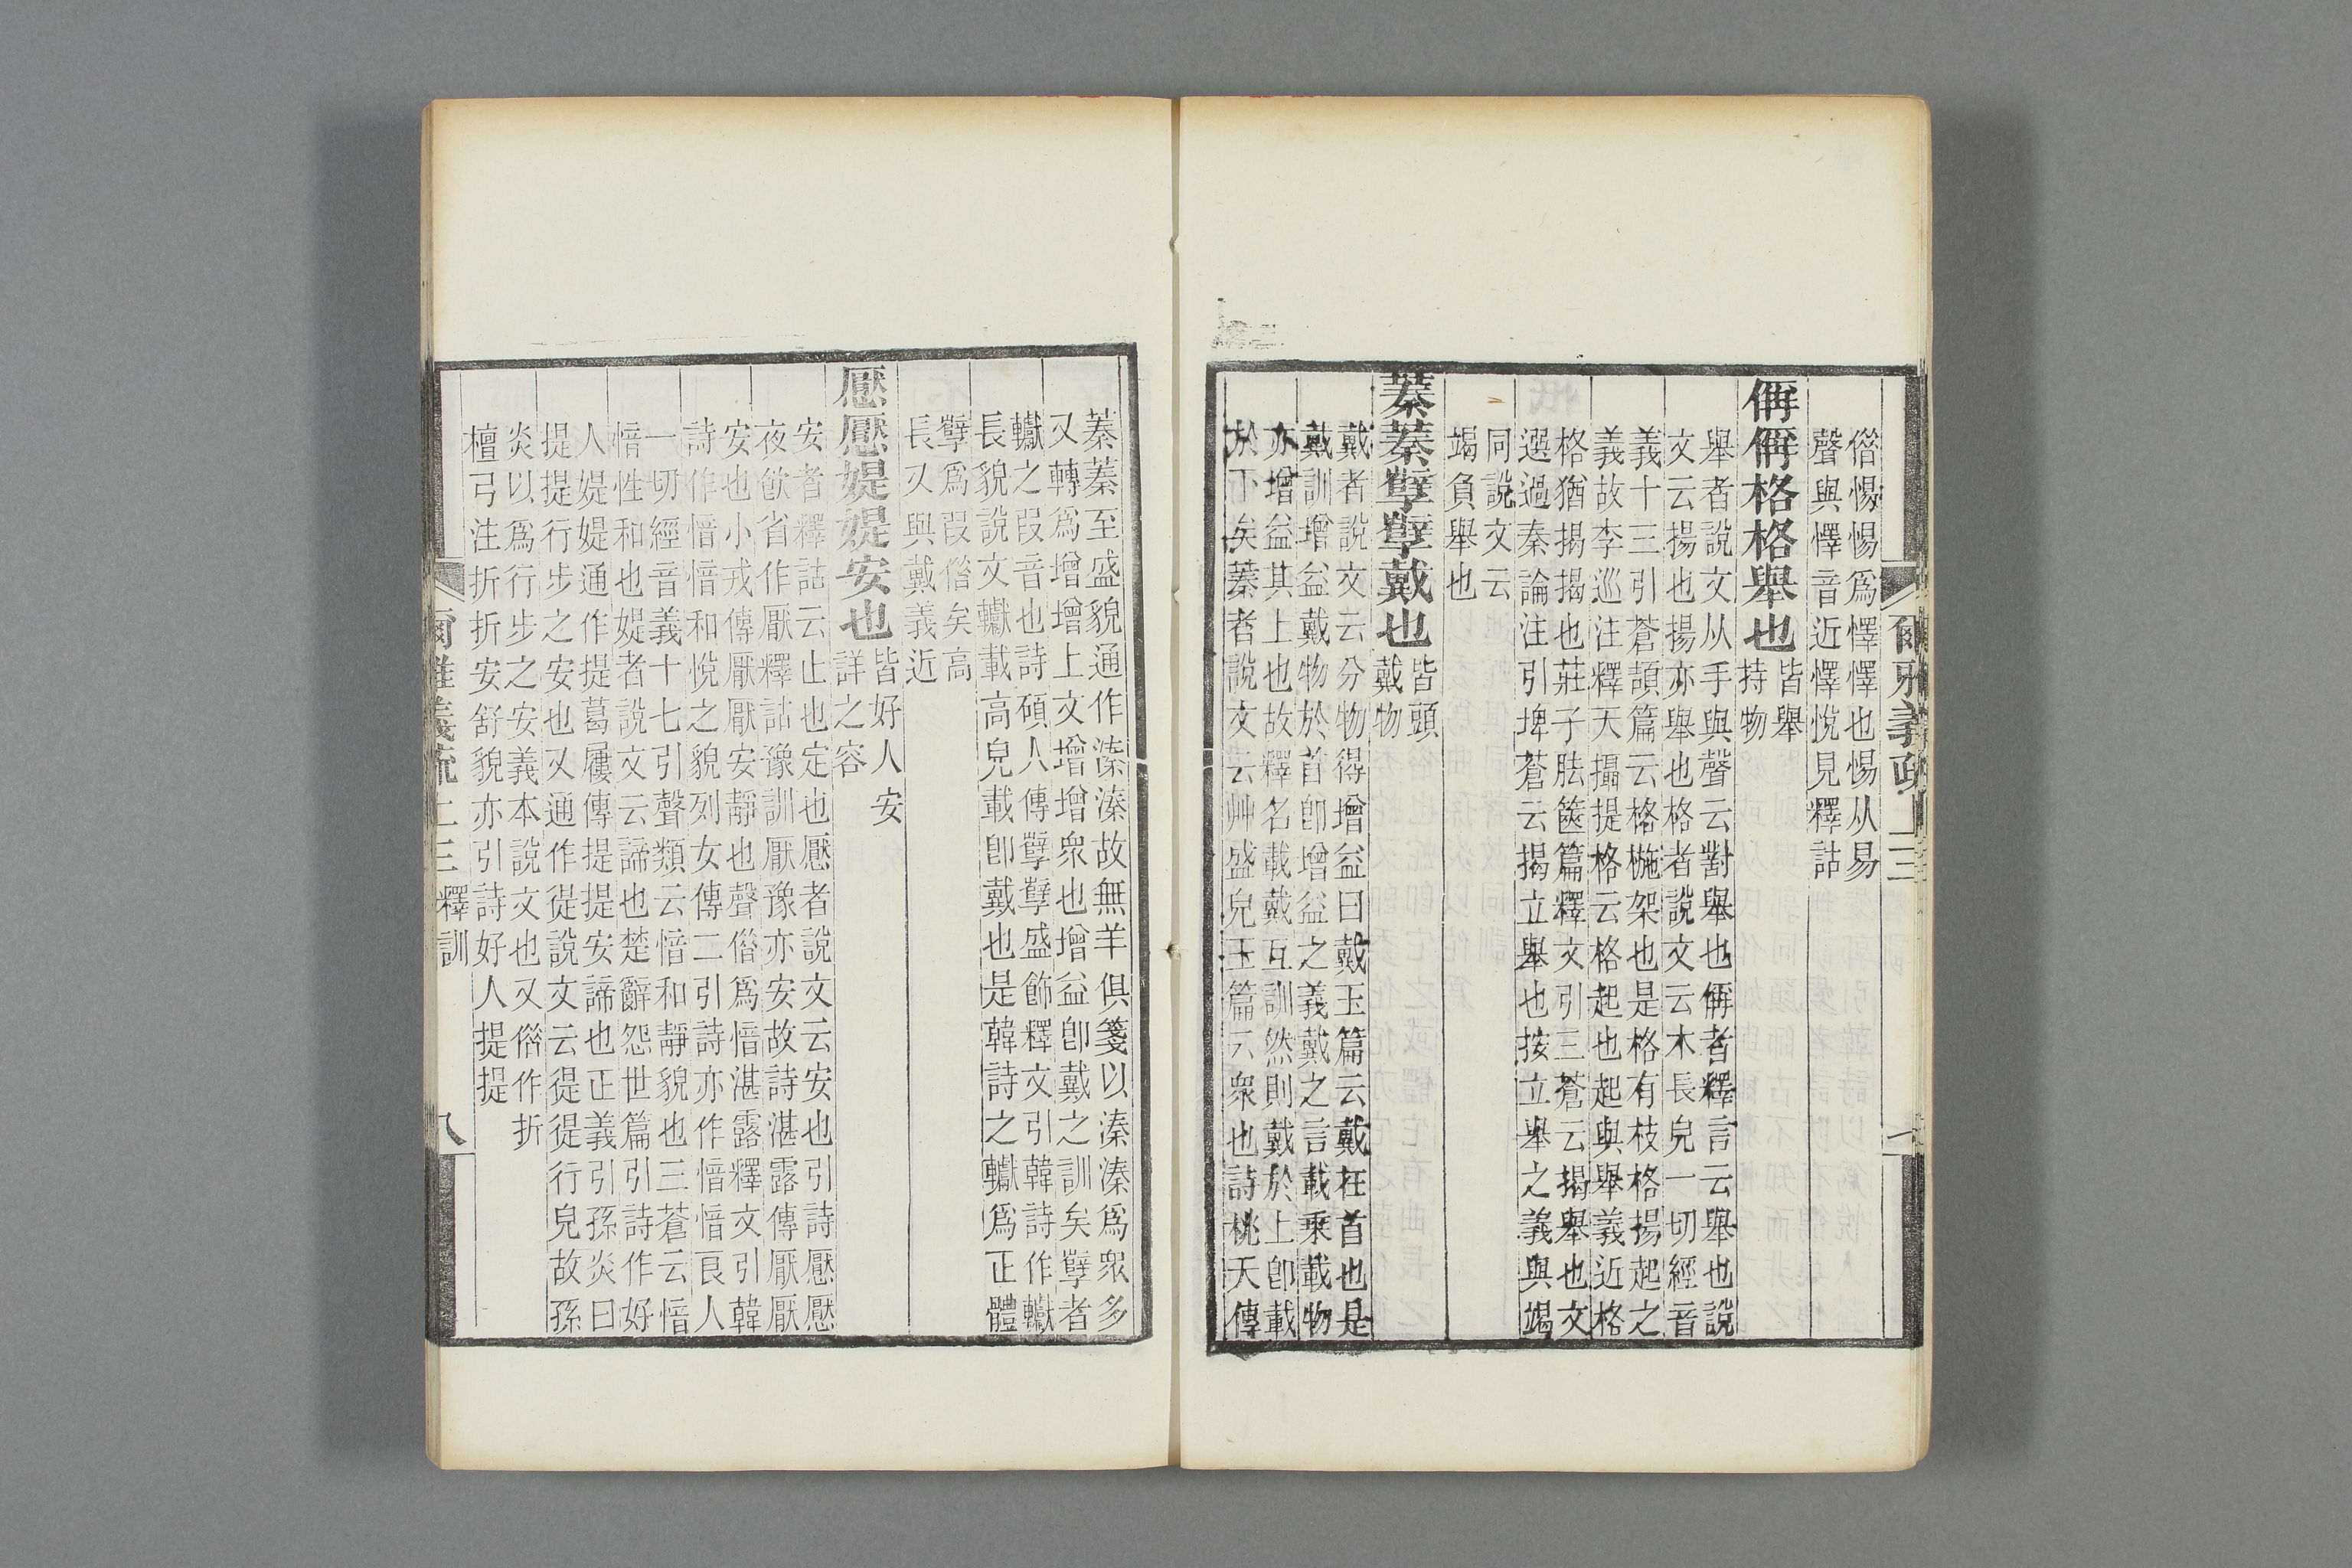 爾雅義疏 上三
偕惕惕爲懌懌也惕从易
聲與懌音近懌悅見釋詁
偁偁格格舉也
皆舉
持物
舉者說文从手與聲云對舉也偁者釋言云舉也說
文云揚也揚亦舉也格者說文云木長皃一切經音
義十三引蒼頡篇云格椸架也是格有枝格揚起之
義故李巡注釋天攝提格云格起也起與舉義近格
格猶揭揭也莊子胠篋篇釋文引三蒼云揭舉也文
選過秦論注引埤蒼云揭立舉也按立舉之義與竭
同說文云
竭負舉也
蓁蓁孼孼戴也
皆頭
戴物
戴者說文云分物得增益曰戴玉篇云戴在首也是
戴訓增益戴物於首卽增益之義戴之言載乘載物
亦增益其上也故釋名載戴互訓然則戴於上卽載
於下矣蓁者說文云艸盛皃玉篇云衆也詩桃夭傳
蓁蓁至盛貌通作溱溱故無羊俱箋以溱溱爲衆多
又轉爲增增上文增增衆也增益卽戴之訓矣孼者
轥之叚音也詩碩人傳孼孼盛飾釋文引韓詩作轥
長貌說文轥載高皃載卽戴也是韓詩之轥爲正體
孼爲叚偕矣高
長又與戴義近
懕懕媞媞安也
皆好人安
詳之容
安者釋詁云止也定也懕者說文云安也引詩懕懕
夜飮省作厭釋詁豫訓厭豫亦安故詩湛露傳厭厭
安也小戎傳厭厭安靜也聲偕爲愔湛露釋文引韓
詩作愔愔和悅之貌列女傳二引詩亦作愔愔良人
一切經音義十七引聲類云愔和靜貌也三蒼云愔
愔性和也媞者說文云諦也楚辭怨世篇引詩作好
人媞媞通作提葛屨傳提提安諦也正義引孫炎曰
提提行步之安也又通作徥說文云徥徥行皃故孫
炎以爲行步之安義本說文也又偕作折
檀弓注折折安舒貌亦引詩好人提提
爾雅義疏 上三 釋訓 八